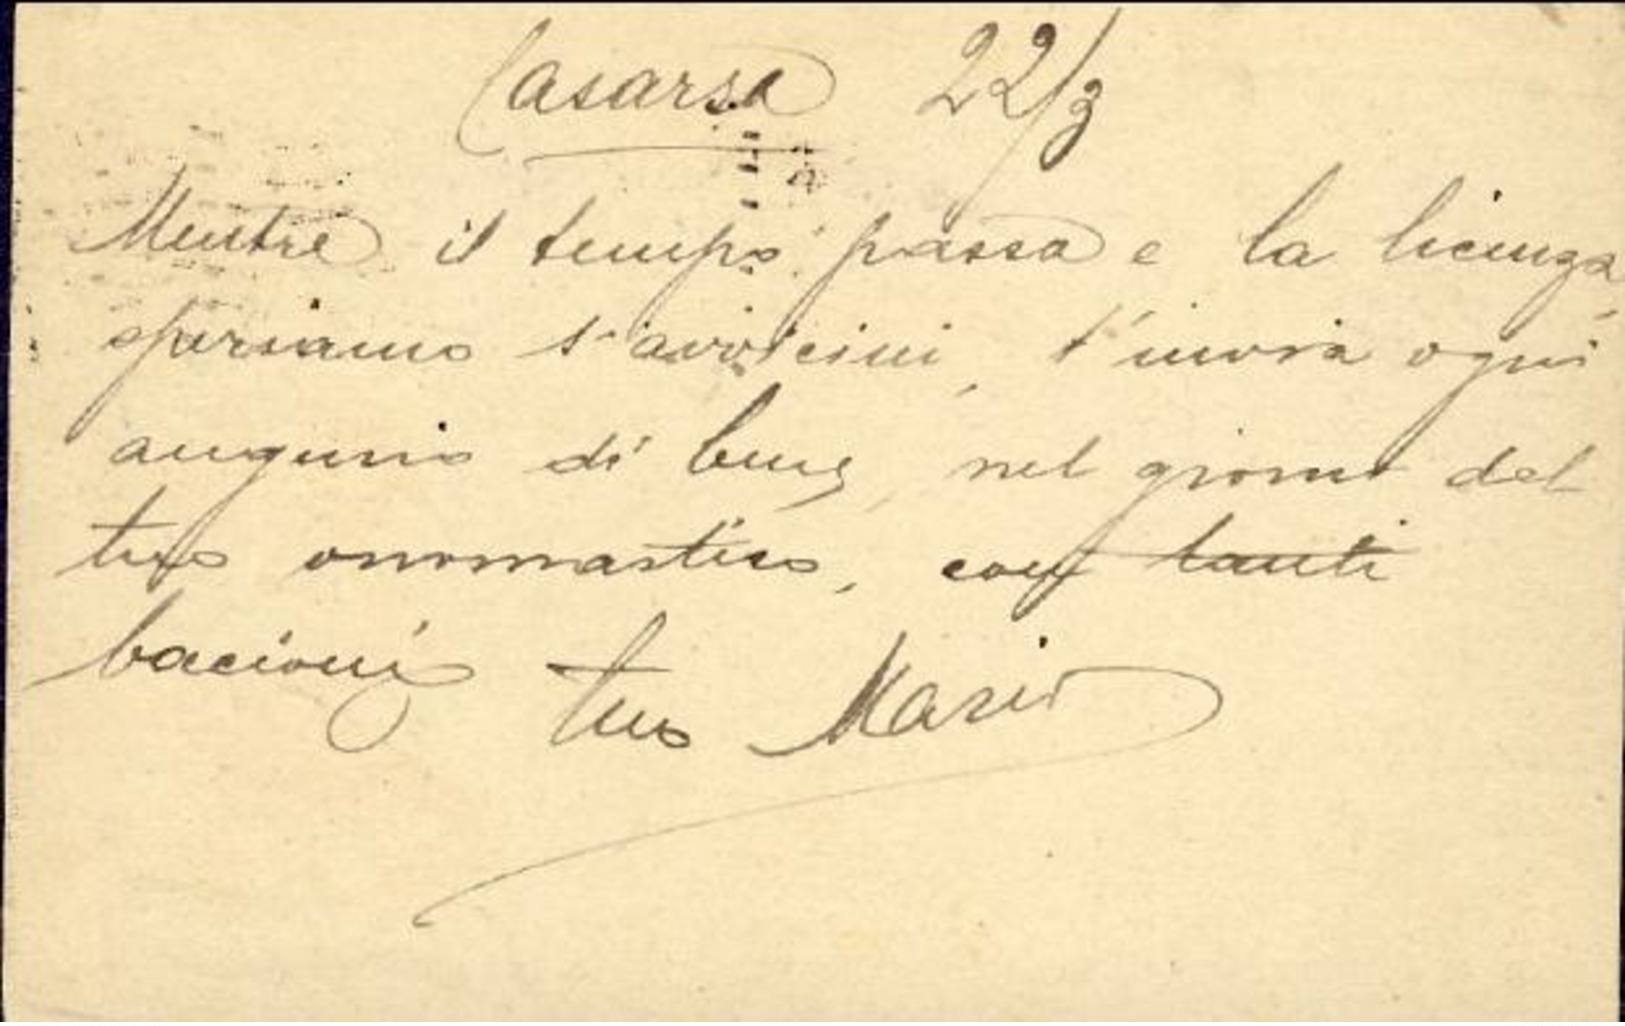 Casarsa 22/3
Mentre il tempo passa e la licenza,
speriamo s'avvicini, t'invia ogni
augurio di bene, nel giorno del
tuo onomastico, con tanti
bacioni tuo Mario